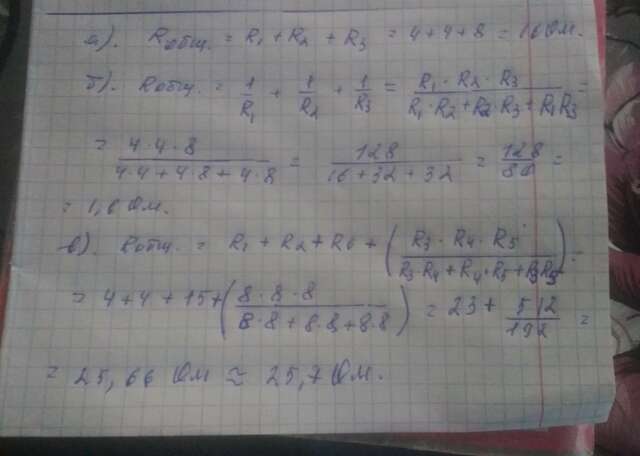 а). Rобщ. = R₁ + R₂ + R₃ = 4+4+8 = 16 Ом.
б). Rобщ. = 1/R₁ + 1/R₂ + 1/R₃ = R₁·R₂·R₃/(R₁·R₂+R₂·R₃+R₁R₃) =
= 4·4·8/(4·4+4·8+4·8) = 128/(16+32+32) = 128/80 =
= 1,6 Ом.
в). Rобщ. = R₁ + R₂ + R₆ + (R₃·R₄·R₅/(R₃·R₄+R₄·R₅+R₃R₅)) =
= 4+4+15+(8·8·8/(8·8+8·8+8·8)) = 23 + 512/192 =
= 25,66 Ом ≈ 25,7 Ом.